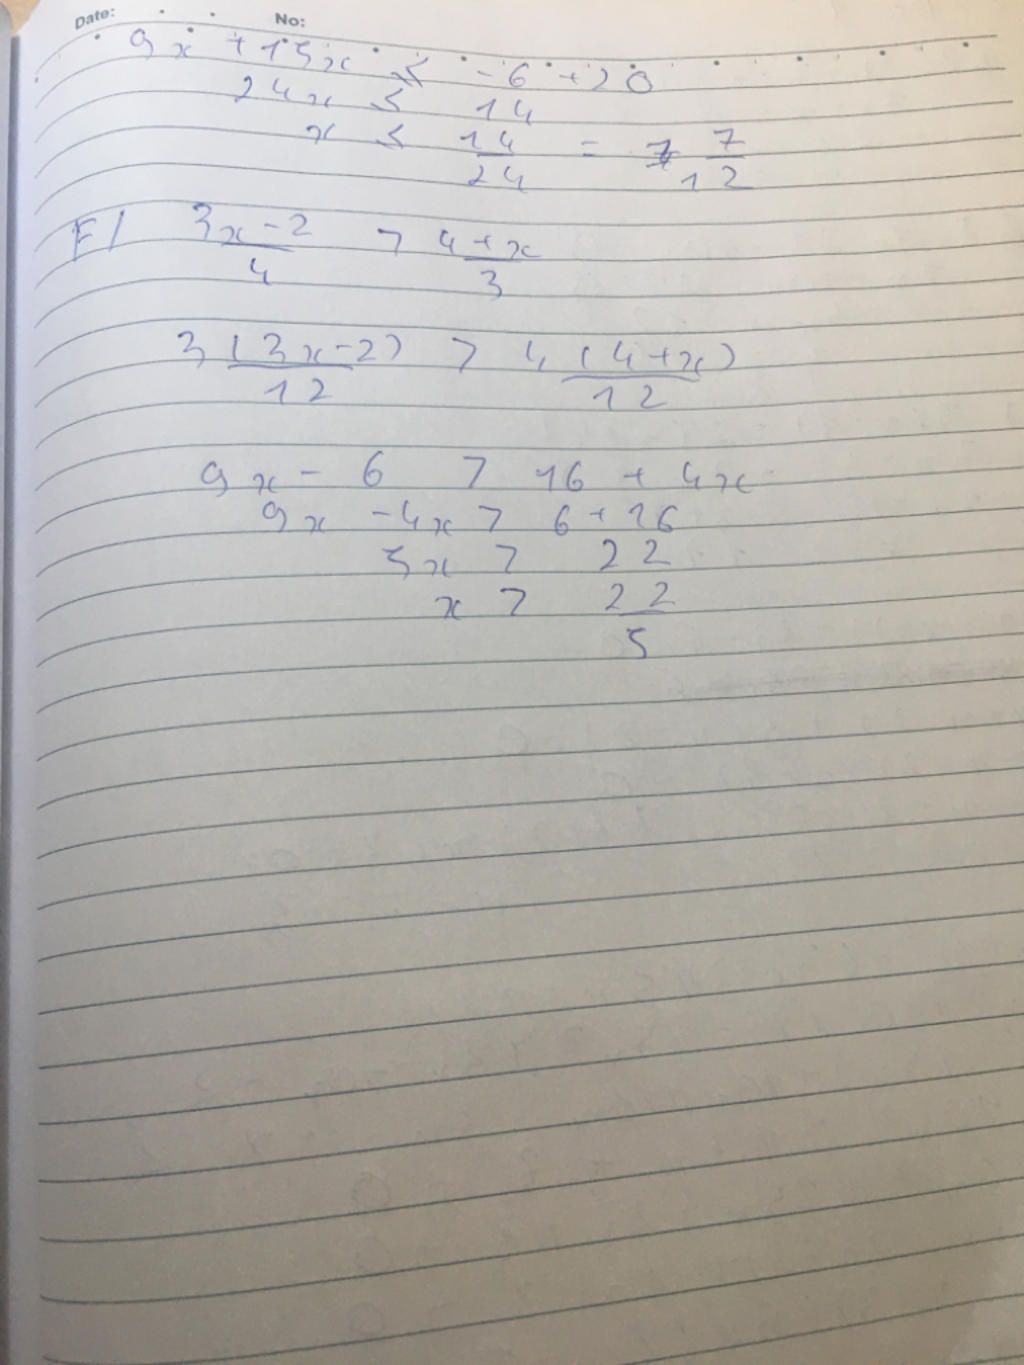 Date: No:
9x + 15x ≤ -6 + 20
24x ≤ 14
x ≤ 14/24 = 7/12
F/ 3x-2/4 > 4+x/3
3(3x-2)/12 > 4(4+x)/12
9x - 6 > 16 + 4x
9x - 4x > 6 + 16
5x > 22
x > 22/5